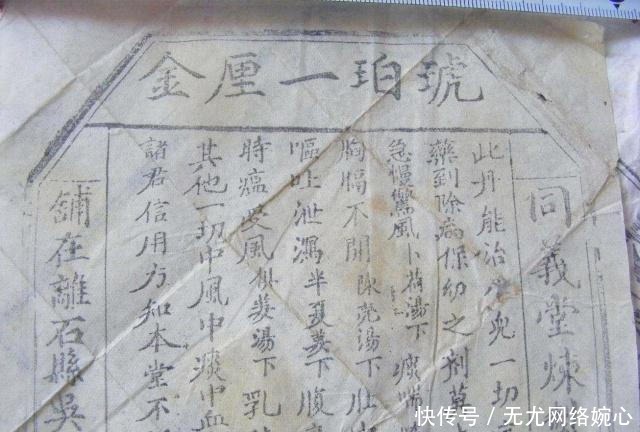 琥珀一厘金
同義堂煉
此丹能治小兒一切
藥到除病保幼之剂草
急慢驚風卜荷湯下痰喘
胸膈不開陈壳湯下肚
嘔吐泄瀉半夏姜下腹
時瘟受風供姜湯下乳
其他一切中風中痰中血
諸君信用方知本堂不
鋪在離石縣吳
快传号/无尤网络婉心